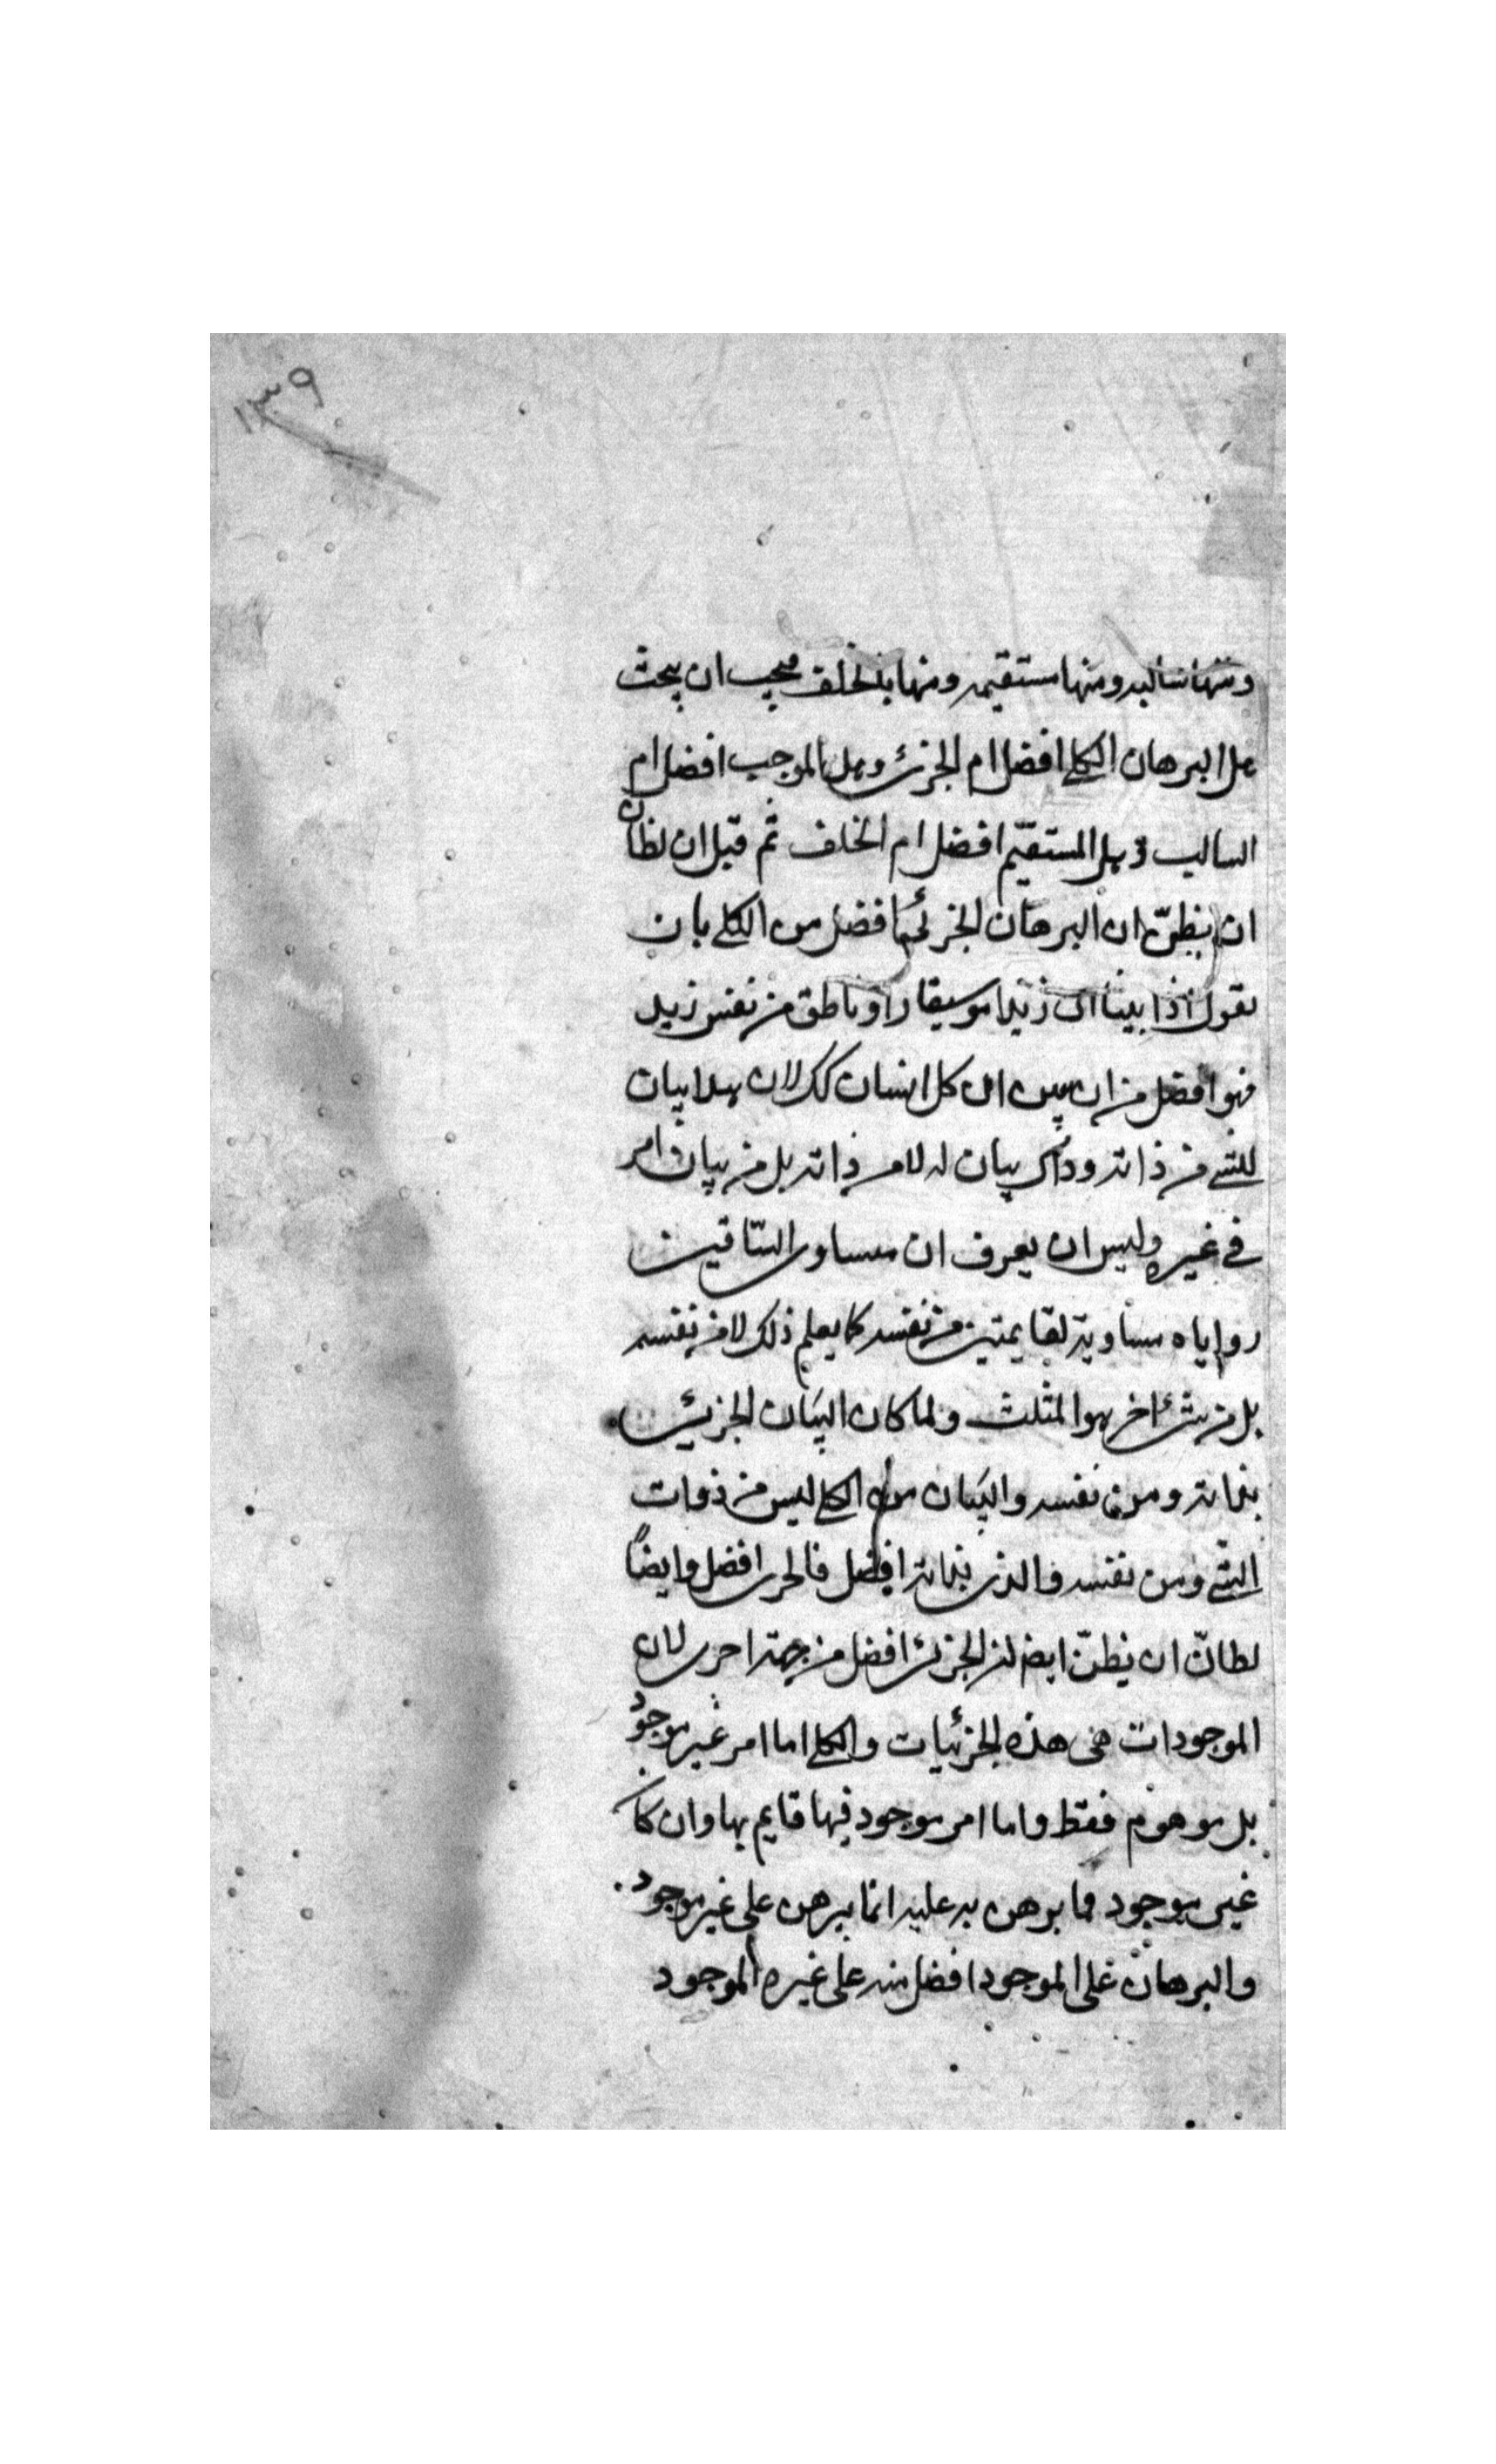 ١٣٩
ومنها سالبه ومنها مستقيمه ومنها بالخلف فيجب ان يبحث
هل البرهان الكلي افضل ام الجزئي وهل الموجب افضل ام
السالب وهل المستقيم افضل ام الخلف ثم قيل ان لظان
ان يظنّ ان البرهان الجزئي افضل من الكلي بان
نقول اذا بينا ان زيدا موسيقار او ناطق من نفس زيد
فهو افضل من ان يبين ان كل انسان كك لان هذا بيان
للشي من ذاته وذاك بيان له لا من ذاته بل من بيان امر
في غيره وليس ان يعرف ان متساوي الساقين
زواياه مساوية لقايمتين من نفسه كما يعلم ذلك لا من نفسه
بل من شئ اخر هو المثلث ولما كان البيان الجزئي
بذاته ومن نفسه والبيان الكلي ليس من ذوات
الشي ومن نفسه والذي بذاته افضل فالجزئي افضل وايضاً
لظانّ ان يظنّ ايض ان الجزئي افضل من جهة اخرى لان
الموجودات هى هذه الجزئيات والكلي اما امر غير موجود
بل موهوم فقط واما امر موجود فيها قايم بها وان كا
غير موجود فما برهن به عليه انما يبرهن على غير موجود
والبرهان على الموجود افضل منه على غيره الموجود